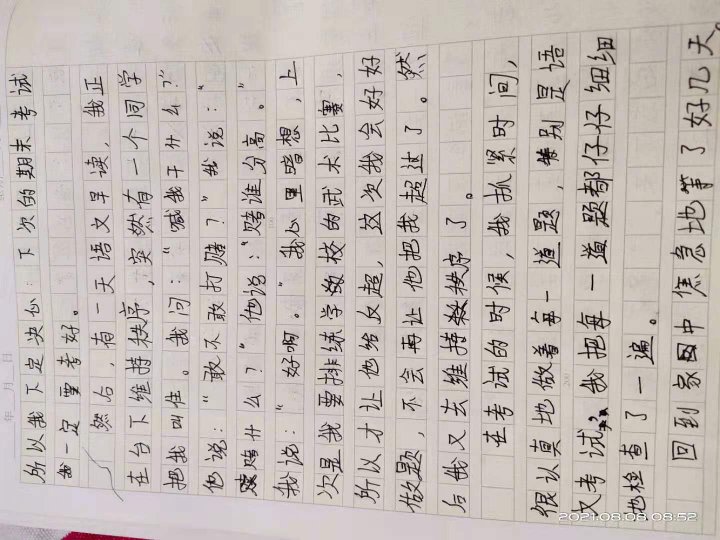 年 月 日
所以我下定决心：下次的期末考试
一定要考好。
然后，有一天语文早读，我正
在台下维持秩序，突然有一个同学
把我叫住。我问：“喊我干什么？”
他说：“敢不敢打赌？”我说：“
赌什么？”他说：“赌谁分高。”
我说：“好啊。”我心里暗想，上
次是我要排练学校的武术比赛，
所以才让他给反超，这次我会好好
做题，不会再让他把我超过了。然
后我又去维持秩序了。
在考试的时候，我抓紧时间，
很认真地做着每一道题，特别是语
文考试，我把每一道题都仔仔细细
地检查了一遍。
回到家中焦急地等了好几天。
2021.08.08 08:52